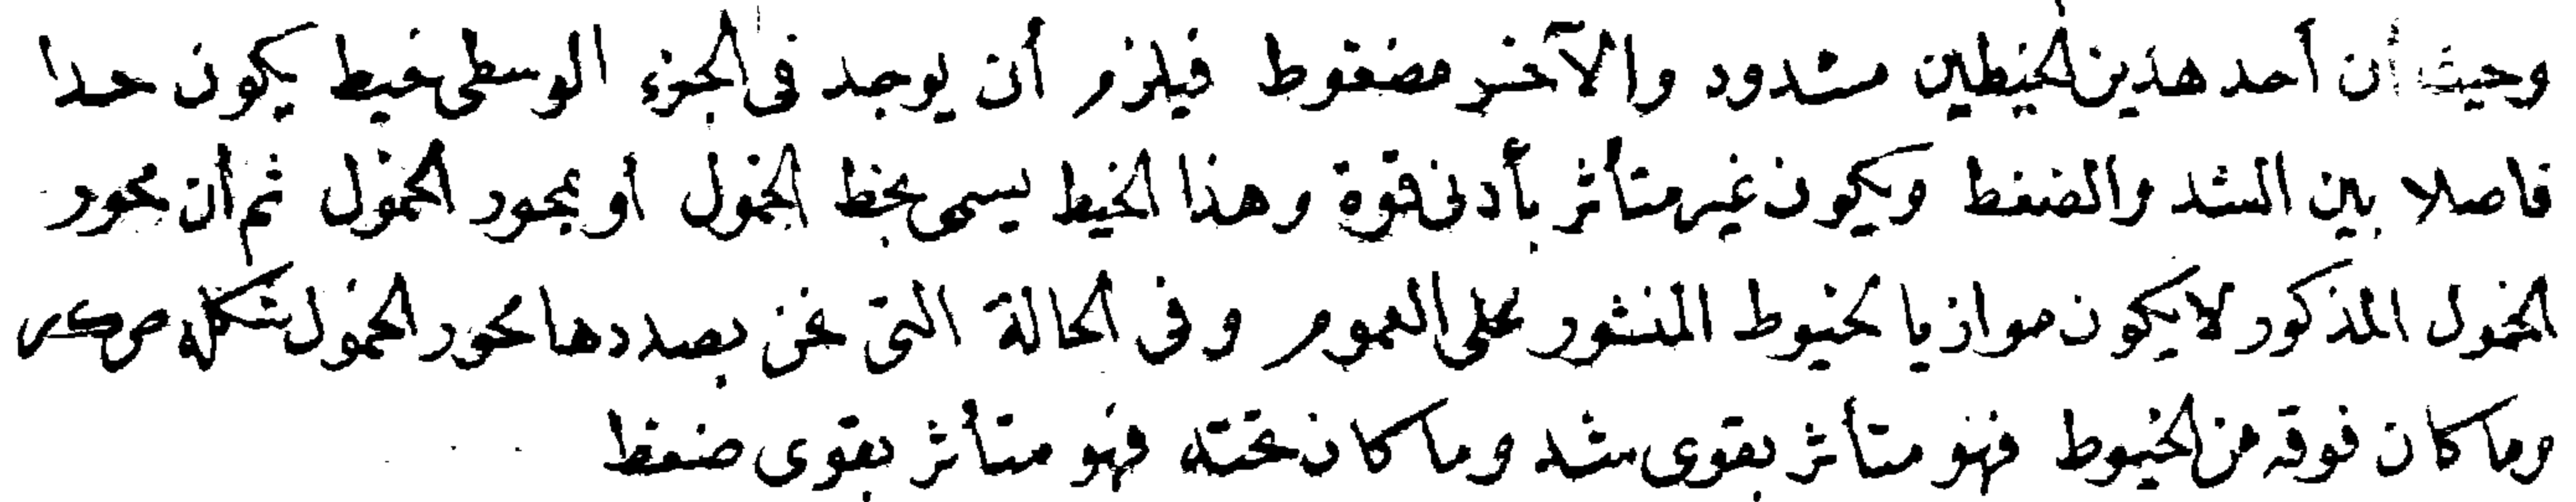 وحيث أن أحد هذين الخيطين مشدود والآخر مضغوط فيلزم أن يوجد فى الجزء الوسطى خيط يكون حدا
فاصلا بين الشد والضغط ويكون غير متأثر بأدنى قوة وهذا الخيط يسمى بخط الخمول أو بمحور الخمول ثم أن محور
الخمول المذكور لا يكون موازيا لخيوط المنشور على العموم وفى الحالة التى نحن بصددها محور الخمول شكله
وما كان فوقه من الخيوط فهو متأثر بقوى شد وما كان تحته فهو متأثر بقوى ضغط